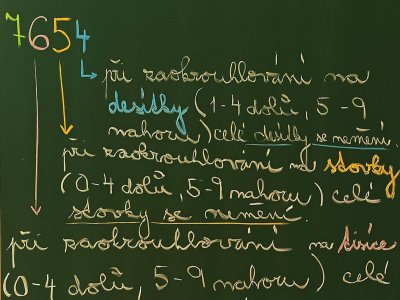 7654
při zaokrouhlování na
desítky (1-4 dolů, 5-9
nahoru) celé desítky se nemění.
při zaokrouhlování na stovky
(0-4 dolů, 5-9 nahoru) celé
stovky se nemění.
při zaokrouhlování na tisíce
(0-4 dolů, 5-9 nahoru) celé